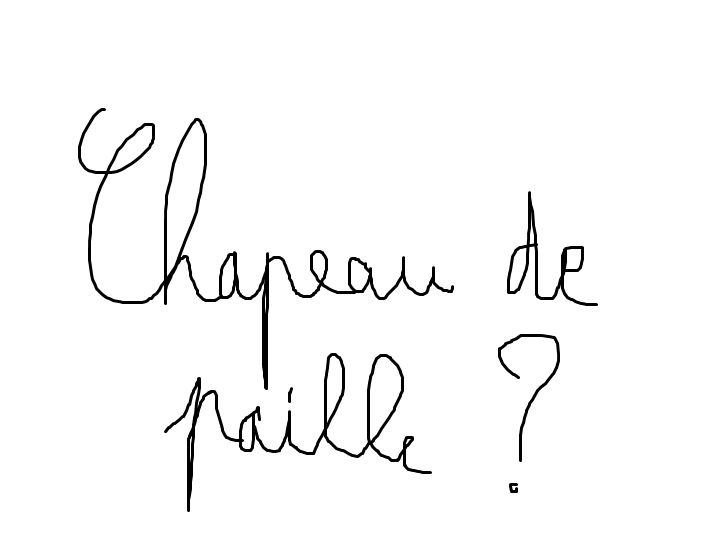 Chapeau de
paille ?